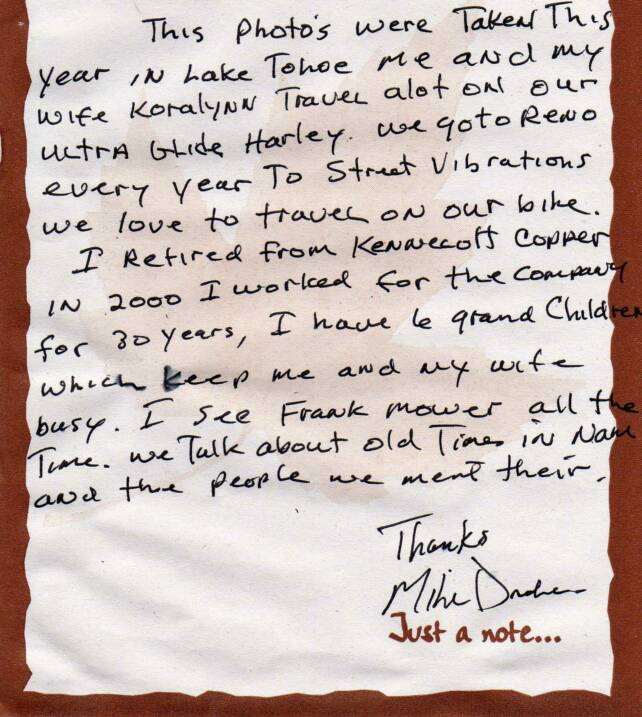 This Photo's were Taken This
year in Lake Tohoe me and my
wife Koralynn Travel alot on our
ultra Glide Harley. we go to Reno
every year To Street Vibrations
we love to travel on our bike.
I Retired from Kennecott Copper
in 2000 I worked for the company
for 30 years, I have 6 grand Children
which keep me and my wife
busy. I see Frank mower all the
Time. we Talk about old Times in Nam
and the people we ment their.
Thanks
Mike
Just a note...